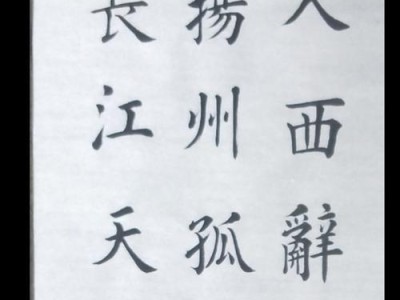 人西辭
揚州孤
長江天